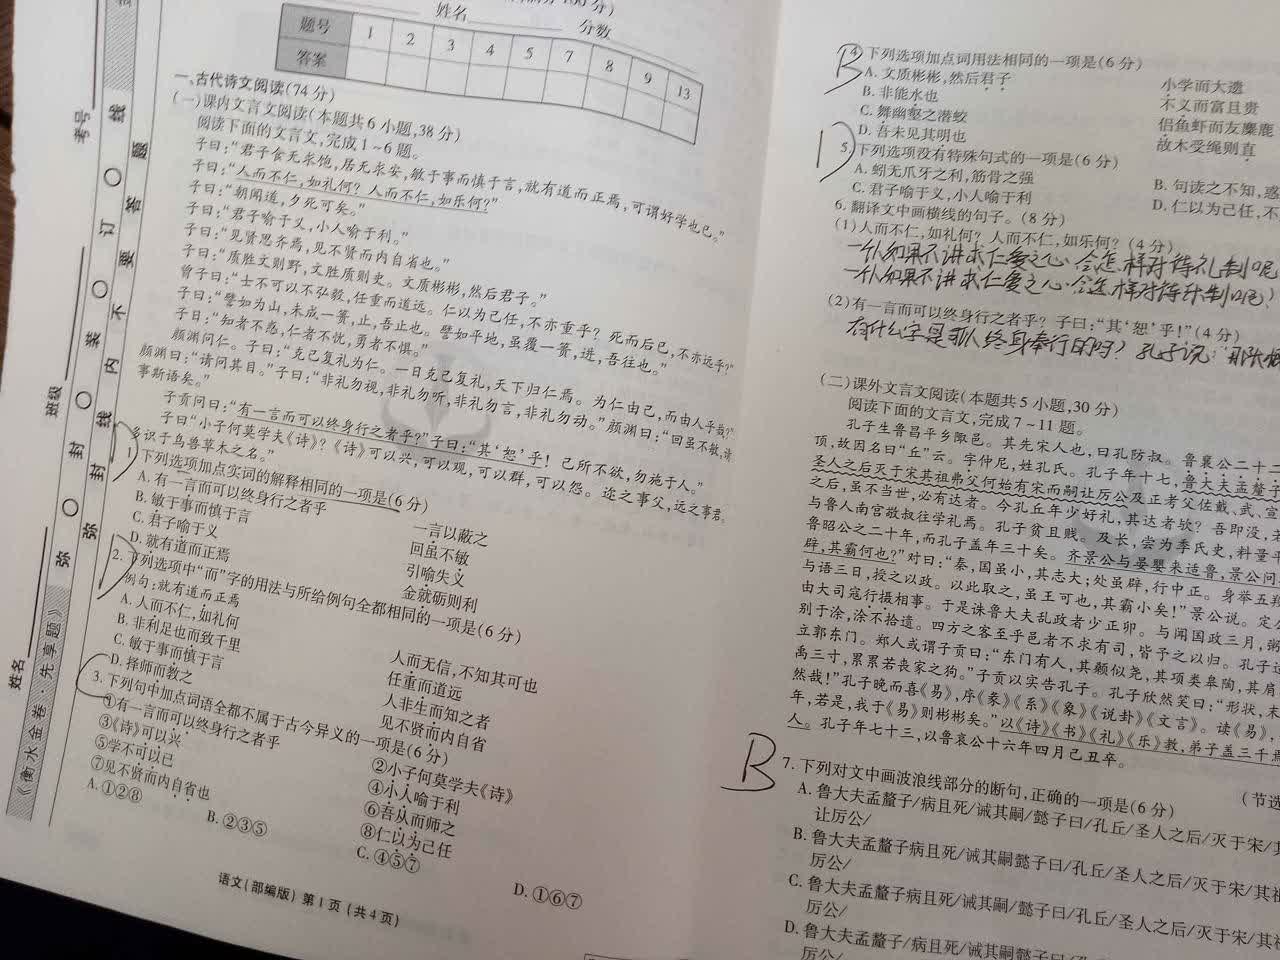 姓名
分数
题号 1 2 3 4 5 7 8 9 13
答案
一、古代诗文阅读(74分)
(一)课内文言文阅读(本题共6小题,38分)
阅读下面的文言文,完成1~6题。
子曰:“君子食无求饱,居无求安,敏于事而慎于言,就有道而正焉,可谓好学也已。”
子曰:“人而不仁,如礼何?人而不仁,如乐何?”
子曰:“朝闻道,夕死可矣。”
子曰:“君子喻于义,小人喻于利。”
子曰:“见贤思齐焉,见不贤而内自省也。”
子曰:“质胜文则野,文胜质则史。文质彬彬,然后君子。”
曾子曰:“士不可以不弘毅,任重而道远。仁以为己任,不亦重乎?死而后已,不亦远乎?”
子曰:“譬如为山,未成一篑,止,吾止也。譬如平地,虽覆一篑,进,吾往也。”
子曰:“知者不惑,仁者不忧,勇者不惧。”
颜渊问仁。子曰:“克己复礼为仁。一日克己复礼,天下归仁焉。为仁由己,而由人乎哉?”
颜渊曰:“请问其目。”子曰:“非礼勿视,非礼勿听,非礼勿言,非礼勿动。”颜渊曰:“回虽不敏,请
事斯语矣。”
子贡问曰:“有一言而可以终身行之者乎?”子曰:“其‘恕’乎!己所不欲,勿施于人。”
子曰“小子何莫学夫《诗》?《诗》可以兴,可以观,可以群,可以怨。迩之事父,远之事君,
多识于鸟兽草木之名。”
1.下列选项加点实词的解释相同的一项是(6分)
A.有一言而可以终身行之者乎 一言以蔽之
B.敏于事而慎于言 回虽不敏
C.君子喻于义 引喻失义
D.就有道而正焉 金就砺则利
2.下列选项中“而”字的用法与所给例句全都相同的一项是(6分)
例句:就有道而正焉
A.人而不仁,如礼何 人而无信,不知其可也
B.非利足也而致千里 任重而道远
C.敏于事而慎于言 人非生而知之者
D.择师而教之 见不贤而内自省
3.下列句中加点词语全都不属于古今异义的一项是(6分)
①有一言而可以终身行之者乎 ②小子何莫学夫《诗》
③《诗》可以兴 ④小人喻于利
⑤学不可以已 ⑥吾从而师之
⑦见不贤而内自省也 ⑧仁以为己任
A.①②⑧ B.②③⑤ C.④⑤⑦ D.①⑥⑦
语文(部编版) 第1页(共4页)
考号
班级
姓名
弥 封 装 订 线
弥 封 线 内 不 要 答 题
《衡水金卷·先享题》
B
4.下列选项加点词用法相同的一项是(6分)
A.文质彬彬,然后君子 小学而大遗
B.非能水也 不义而富且贵
C.舞幽壑之潜蛟 侣鱼虾而友麋鹿
D.吾未见其明也 故木受绳则直
D
5.下列选项没有特殊句式的一项是(6分)
A.蚓无爪牙之利,筋骨之强 B.句读之不知,惑
C.君子喻于义,小人喻于利 D.仁以为己任,不
6.翻译文中画横线的句子。(8分)
(1)人而不仁,如礼何?人而不仁,如乐何?(4分)
一个人如果不讲求仁爱之心,会怎样对待礼制呢
一个人如果不讲求仁爱之心,会怎样对待乐制呢
(2)有一言而可以终身行之者乎?子曰:“其‘恕’乎!”(4分)
有什么字是能终身奉行的吗?孔子说:那
(二)课外文言文阅读(本题共5小题,30分)
阅读下面的文言文,完成7~11题。
孔子生鲁昌平乡陬邑。其先宋人也,曰孔防叔。鲁襄公二十二
顶,故因名曰“丘”云。字仲尼,姓孔氏。孔子年十七,鲁大夫孟釐子
圣人之后灭于宋其祖弗父何始有宋而嗣让厉公及正考父佐戴、武、宣
之后,虽不当世,必有达者。今孔丘年少好礼,其达者欤?吾即没,若
与鲁人南宫敬叔往学礼焉。孔子贫且贱。及长,尝为季氏史,料量平
鲁昭公之二十年,而孔子盖年三十矣。齐景公与晏婴来适鲁,景公问
辟,其霸何也?”对曰:“秦,国虽小,其志大;处虽辟,行中正。身举五羖
与语三日,授之以政。以此取之,虽王可也,其霸小矣!”景公说。定公
由大司寇行摄相事。于是诛鲁大夫乱政者少正卯。与闻国政三月,粥
别于涂,涂不拾遗。四方之客至乎邑者不求有司,皆予之以归。孔子适
立郭东门。郑人或谓子贡曰:“东门有人,其颡似尧,其项类皋陶,其肩
禹三寸,累累若丧家之狗。”子贡以实告孔子。孔子欣然笑曰:“形状,末
然哉!”孔子晚而喜《易》,序《彖》《系》《象》《说卦》《文言》。读《易》,
年,若是,我于《易》则彬彬矣。”以《诗》《书》《礼》《乐》教,弟子盖三千焉
人。孔子年七十三,以鲁哀公十六年四月己丑卒。
(节选
B
7.下列对文中画波浪线部分的断句,正确的一项是(6分)
A.鲁大夫孟釐子/病且死/诫其嗣/懿子曰/孔丘/圣人之后/灭于宋/其
让厉公/
B.鲁大夫孟釐子病且死/诫其嗣懿子曰/孔丘/圣人之后/灭于宋/其祖
厉公/
C.鲁大夫孟釐子病且死/诫其嗣/懿子曰/孔丘/圣人之后/灭于宋/其祖
厉公/
D.鲁大夫孟釐子/病且死/诫其嗣懿子曰/孔
厉公/